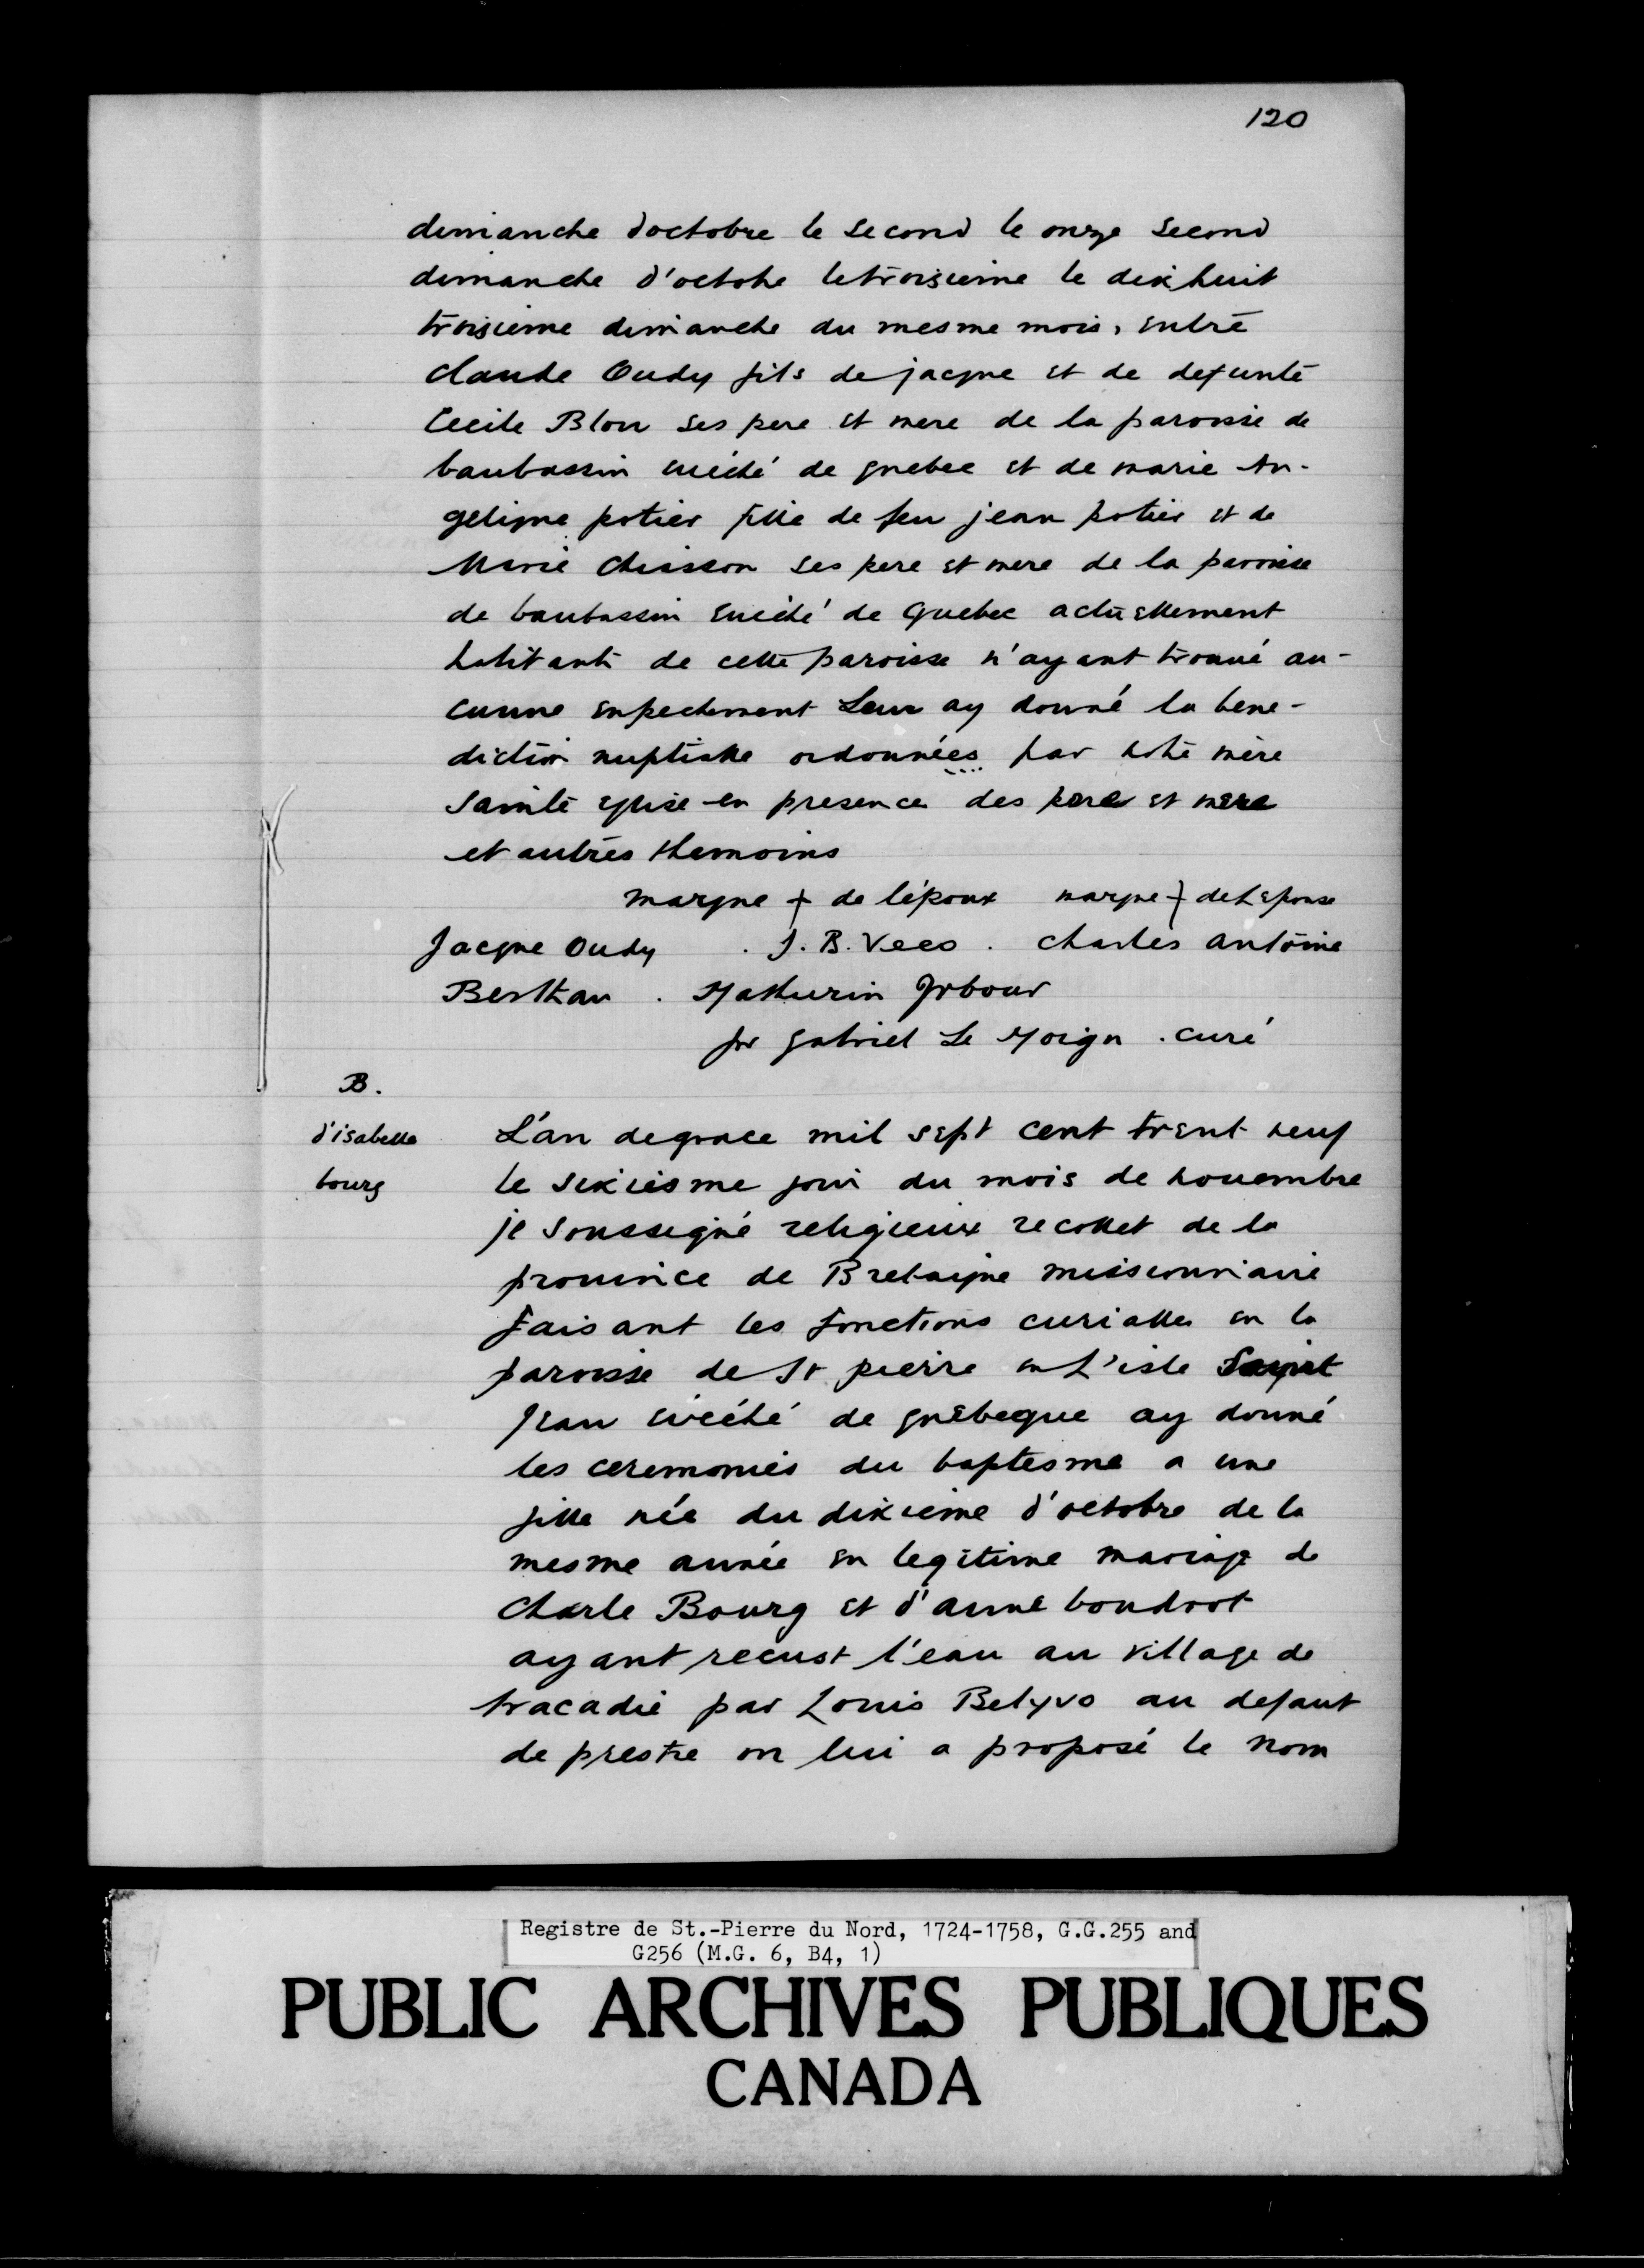 120
dimanche d'octobre le second le onze second
dimanche d'octobre le troisieme le dixhuit
troisieme dimanche du mesme mois, entre
Claude Oudy fils de jacque et de defunte
Cecile Blou ses pere et mere de la paroisse de
baubassin evéché de quebec et de marie An-
gelique potier fille de feu jean potier et de
Marie Chiasson ses pere et mere de la paroisse
de baubassin evéché de Quebec actuellement
habitants de cette paroisse n'ayant trouué au-
cunne enpechement Leur ay donné la bene-
diction nuptialle ordonnées par notre mère
Sainte eglise en presence des pere et mere
et autres themoins
marque + de l'époux marque + de L'epouse
Jacque Oudy . J. B. Veco . Charles antoine
Berthau . Mathurin
fr gabriel Le Moign . curé
B.
d'isabelle
bourg
L'an degrace mil sept cent trent neuf
le sixiesme jour du mois de nouembre
je soussigné religieux recollet de la
prouince de Bretaigne missionnaire
faisant les fonctions curialles en la
paroisse de St pierre en L'isle Saint
Jean evéché de quebeque ay donné
les ceremonies du baptesme a une
fille née du dixieme d'octobre de la
mesme année en legitime mariage de
Charle Bourg et d'anne boudrot
ayant recust l'eau au village de
tracadie par Louis Belyvo au defaut
de prestre on lui a proposé le nom
Registre de St.-Pierre du Nord, 1724-1758, G.G.255 and
G256 (M.G. 6, B4, 1)
PUBLIC ARCHIVES PUBLIQUES
CANADA